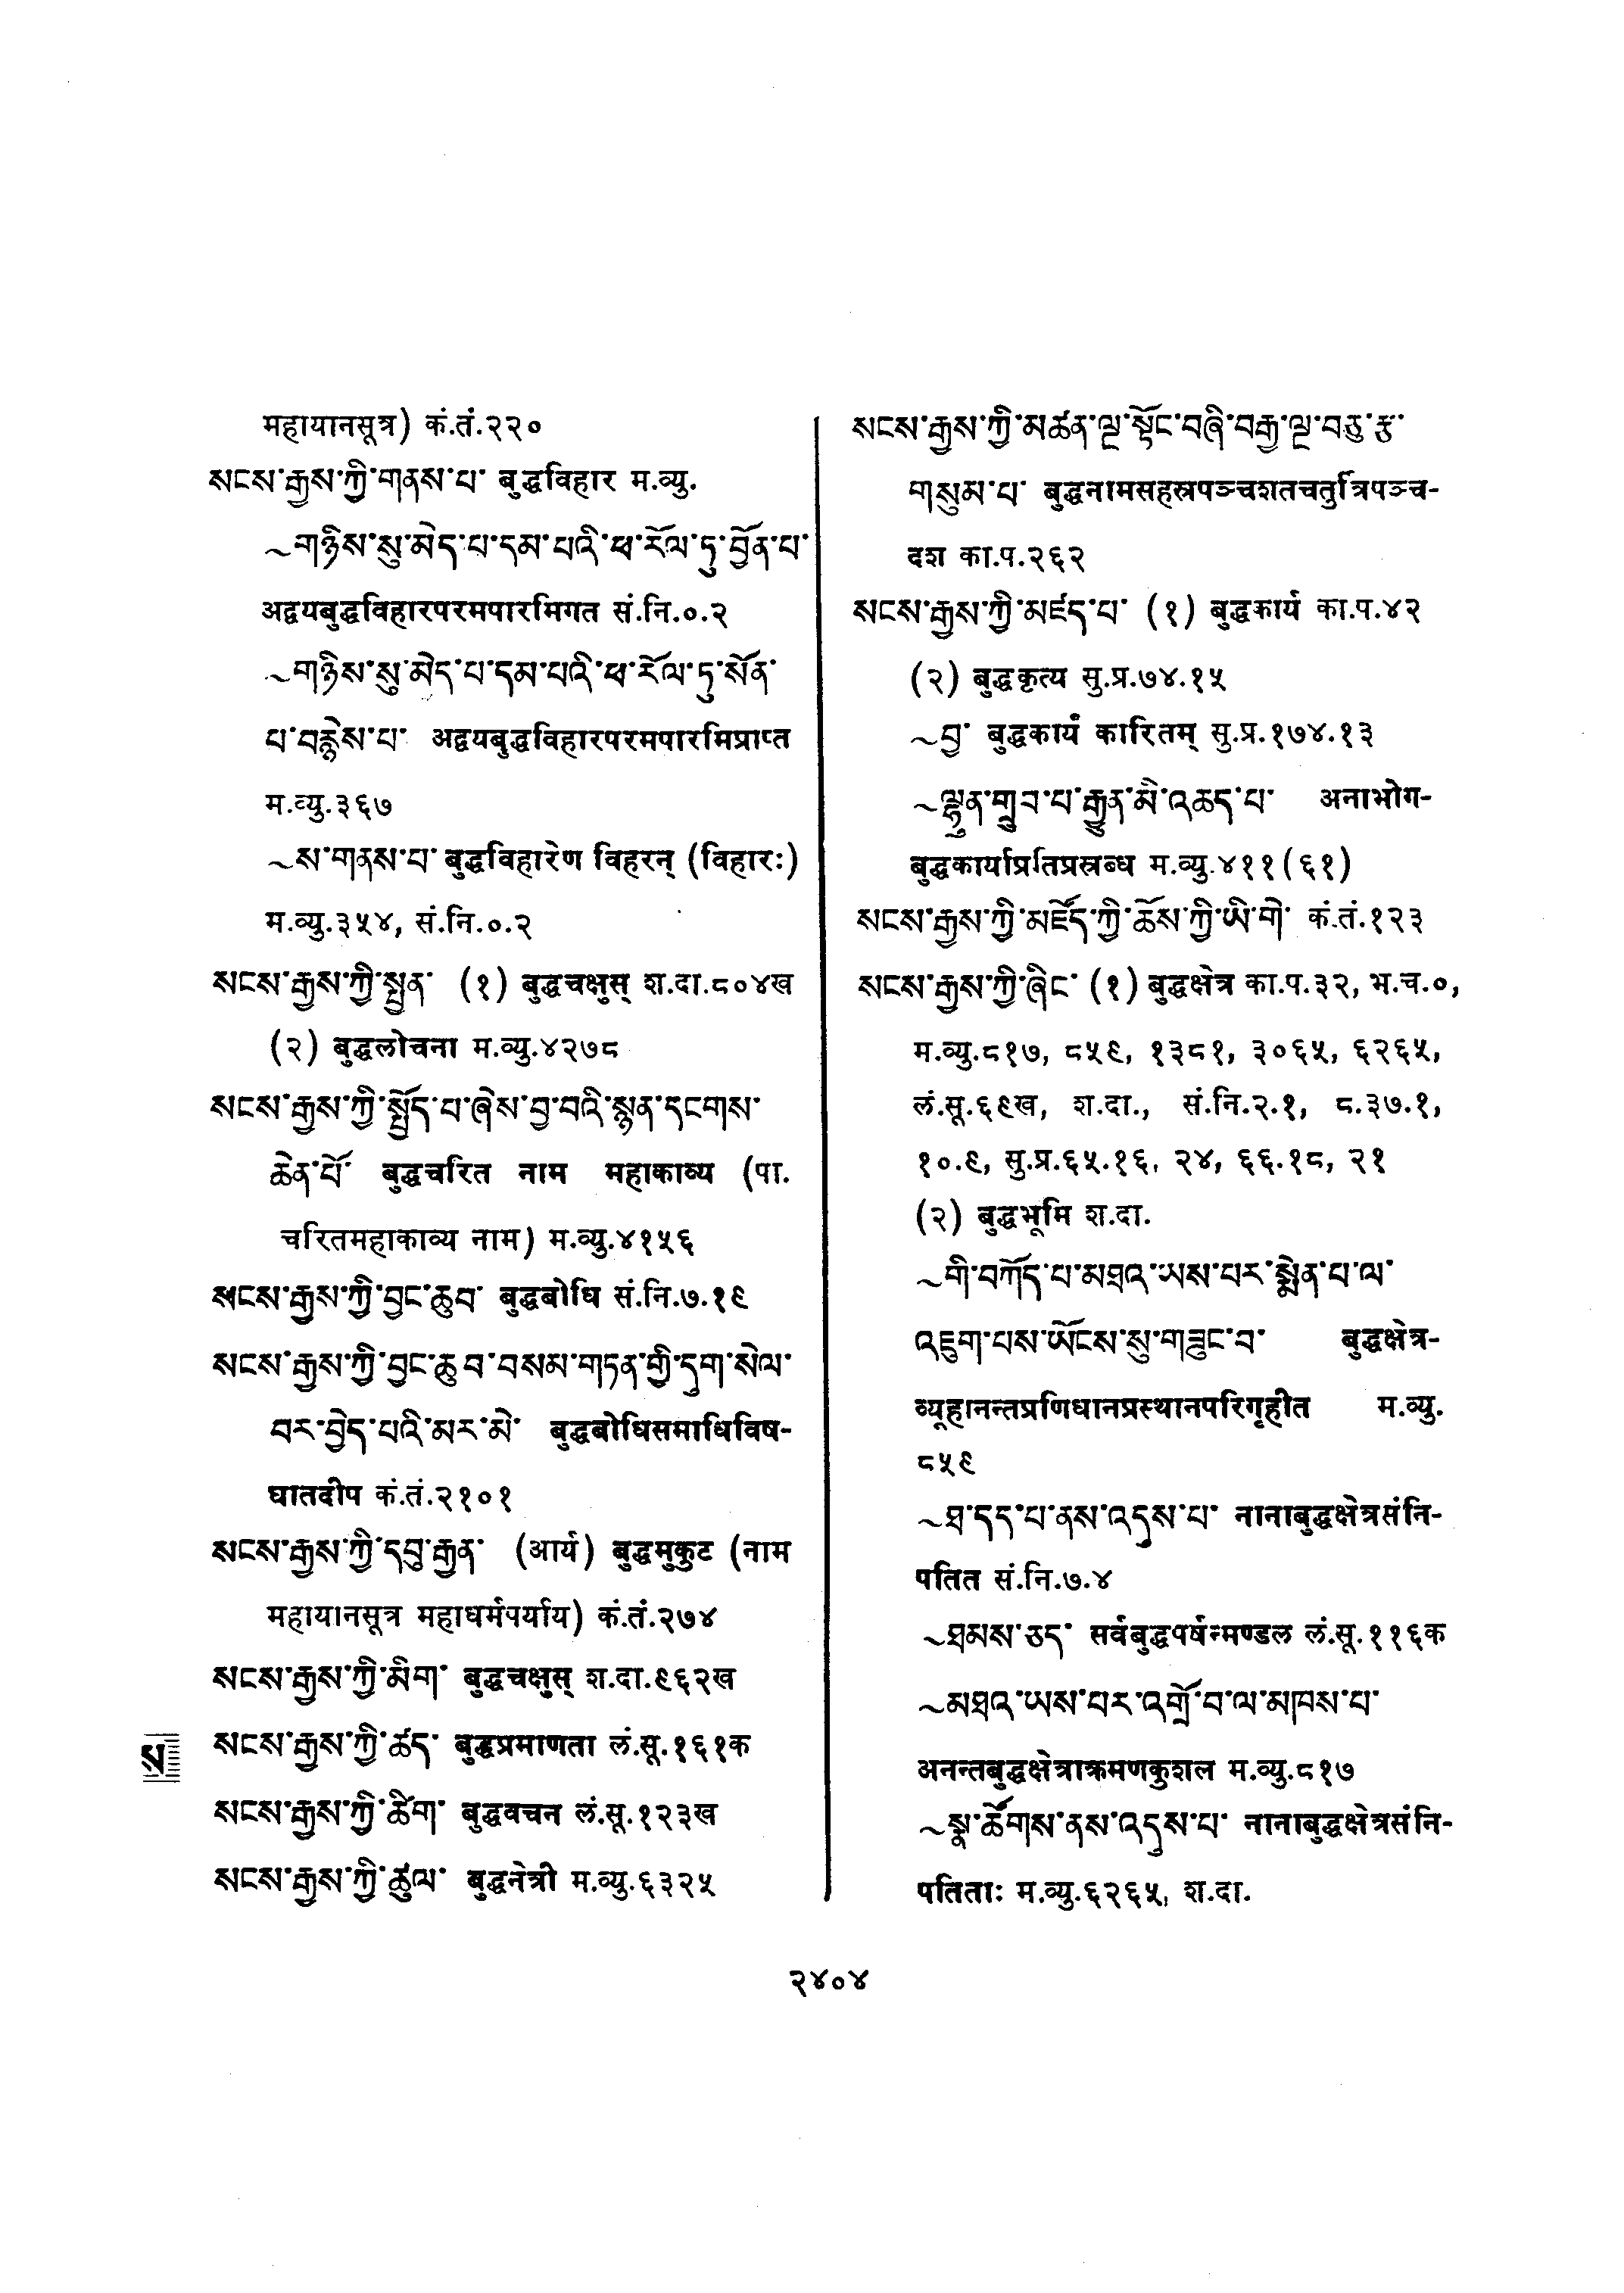 महायानसूत्र) कं.तं.२२०
སངས་རྒྱས་ཀྱི་གནས་པ་ बुद्धविहार म.व्यु.
~གཉིས་སུ་མེད་པ་དམ་པའི་ཕ་རོལ་ཏུ་བྱོན་པ་
अद्वयबुद्धविहारपरमपारमिगत सं.नि.०.२
~གཉིས་སུ་མེད་པ་དམ་པའི་ཕ་རོལ་ཏུ་སོན་
པ་བརྙེས་པ་ अद्वयबुद्धविहारपरमपारमिप्राप्त
म.व्यु.३६७
~ས་གནས་པ་ बुद्धविहारेण विहरन् (विहारः)
म.व्यु.३५४, सं.नि.०.२
སངས་རྒྱས་ཀྱི་སྤྱན་ (१) बुद्धचक्षुस् श.दा.८०४ख
(२) बुद्धलोचना म.व्यु.४२७८
སངས་རྒྱས་ཀྱི་སྤྱོད་པ་ཞེས་བྱ་བའི་སྙན་དངགས་
ཆེན་པོ་ बुद्धचरित नाम महाकाव्य (पा.
चरितमहाकाव्य नाम) म.व्यु.४१५६
སངས་རྒྱས་ཀྱི་བྱང་ཆུབ་ बुद्धबोधि सं.नि.७.१९
སངས་རྒྱས་ཀྱི་བྱང་ཆུབ་བསམ་གཏན་གྱི་དུག་སེལ་
བར་བྱེད་པའི་མར་མེ་ बुद्धबोधिसमाधिविष-
घातदीप कं.तं.२१०१
སངས་རྒྱས་ཀྱི་དབུ་རྒྱན་ (आर्य) बुद्धमुकुट (नाम
महायानसूत्र महाधर्मपर्याय) कं.तं.२७४
སངས་རྒྱས་ཀྱི་མིག་ बुद्धचक्षुस् श.दा.९६२ख
ས
སངས་རྒྱས་ཀྱི་ཚད་ बुद्धप्रमाणता लं.सू.१६१क
སངས་རྒྱས་ཀྱི་ཚིག་ बुद्धवचन लं.सू.१२३ख
སངས་རྒྱས་ཀྱི་ཚུལ་ बुद्धनेत्री म.व्यु.६३२५
སངས་རྒྱས་ཀྱི་མཚན་ལྔ་སྟོང་བཞི་བརྒྱ་ལྔ་བཅུ་རྩ་
གསུམ་པ་ बुद्धनामसहस्रपञ्चशतचतुर्त्रिपञ्च-
दश का.प.२६२
སངས་རྒྱས་ཀྱི་མཛད་པ་ (१) बुद्धकार्य का.प.४२
(२) बुद्धकृत्य सु.प्र.७४.१५
~བྱ་ बुद्धकार्यं कारितम् सु.प्र.१७४.१३
~ལྷུན་གྲུབ་པ་རྒྱུན་མི་འཆད་པ་ अनाभोग-
बुद्धकार्याप्रतिप्रस्रब्ध म.व्यु.४११(६१)
སངས་རྒྱས་ཀྱི་མཛོད་ཀྱི་ཆོས་ཀྱི་ཡི་གེ་ कं.तं.१२३
སངས་རྒྱས་ཀྱི་ཞིང་ (१) बुद्धक्षेत्र का.प.३२, भ.च.०,
म.व्यु.८१७, ८५९, १३८१, ३०६५, ६२६५,
लं.सू.६९ख, श.दा., सं.नि.२.१, ८.३७.१,
१०.९, सु.प्र.६५.१६, २४, ६६.१८, २१
(२) बुद्धभूमि श.दा.
~གི་བཀོད་པ་མཐའ་ཡས་པར་སྨོན་པ་ལ་
འཇུག་པས་ཡོངས་སུ་གཟུང་བ་ बुद्धक्षेत्र-
व्यूहानन्तप्रणिधानप्रस्थानपरिगृहीत म.व्यु.
८५९
~ཐ་དད་པ་ནས་འདུས་པ་ नानाबुद्धक्षेत्रसंनि-
पतित सं.नि.७.४
~ཐམས་ཅད་ सर्वबुद्धपर्षन्मण्डल लं.सू.११६क
~མཐའ་ཡས་པར་འགྲོ་བ་ལ་མཁས་པ་
अनन्तबुद्धक्षेत्राक्रमणकुशल म.व्यु.८१७
~སྣ་ཚོགས་ནས་འདུས་པ་ नानाबुद्धक्षेत्रसंनि-
पतिताः म.व्यु.६२६५, श.दा.
२४०४